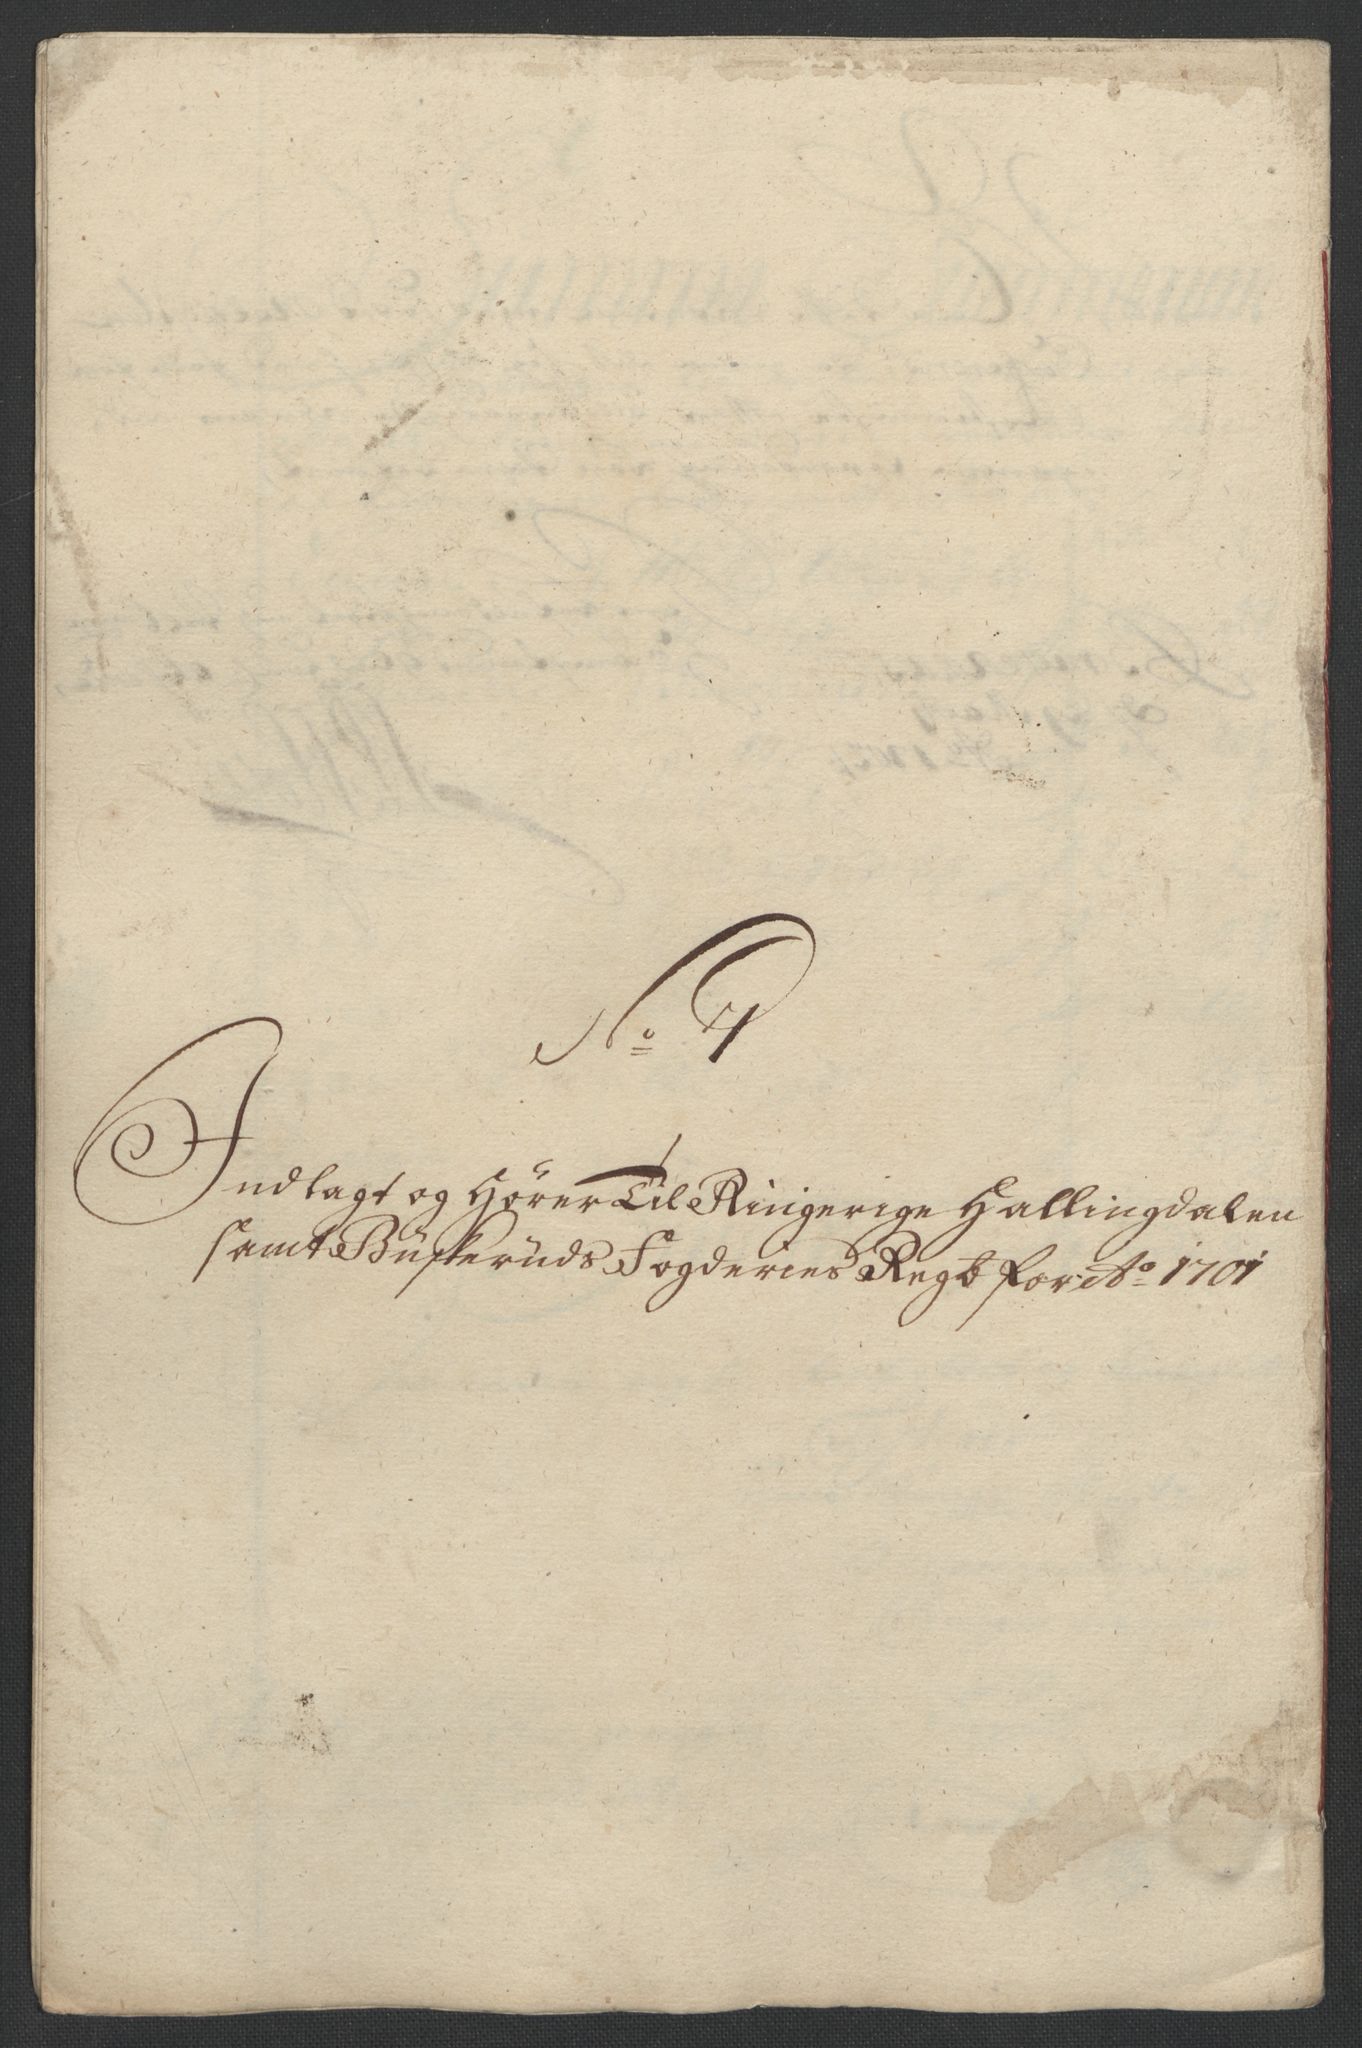 No 7
Indlagt og Hører Til Ringerige Hallingdalen
samt Buskeruds Fogderies Regb for Ao 1701